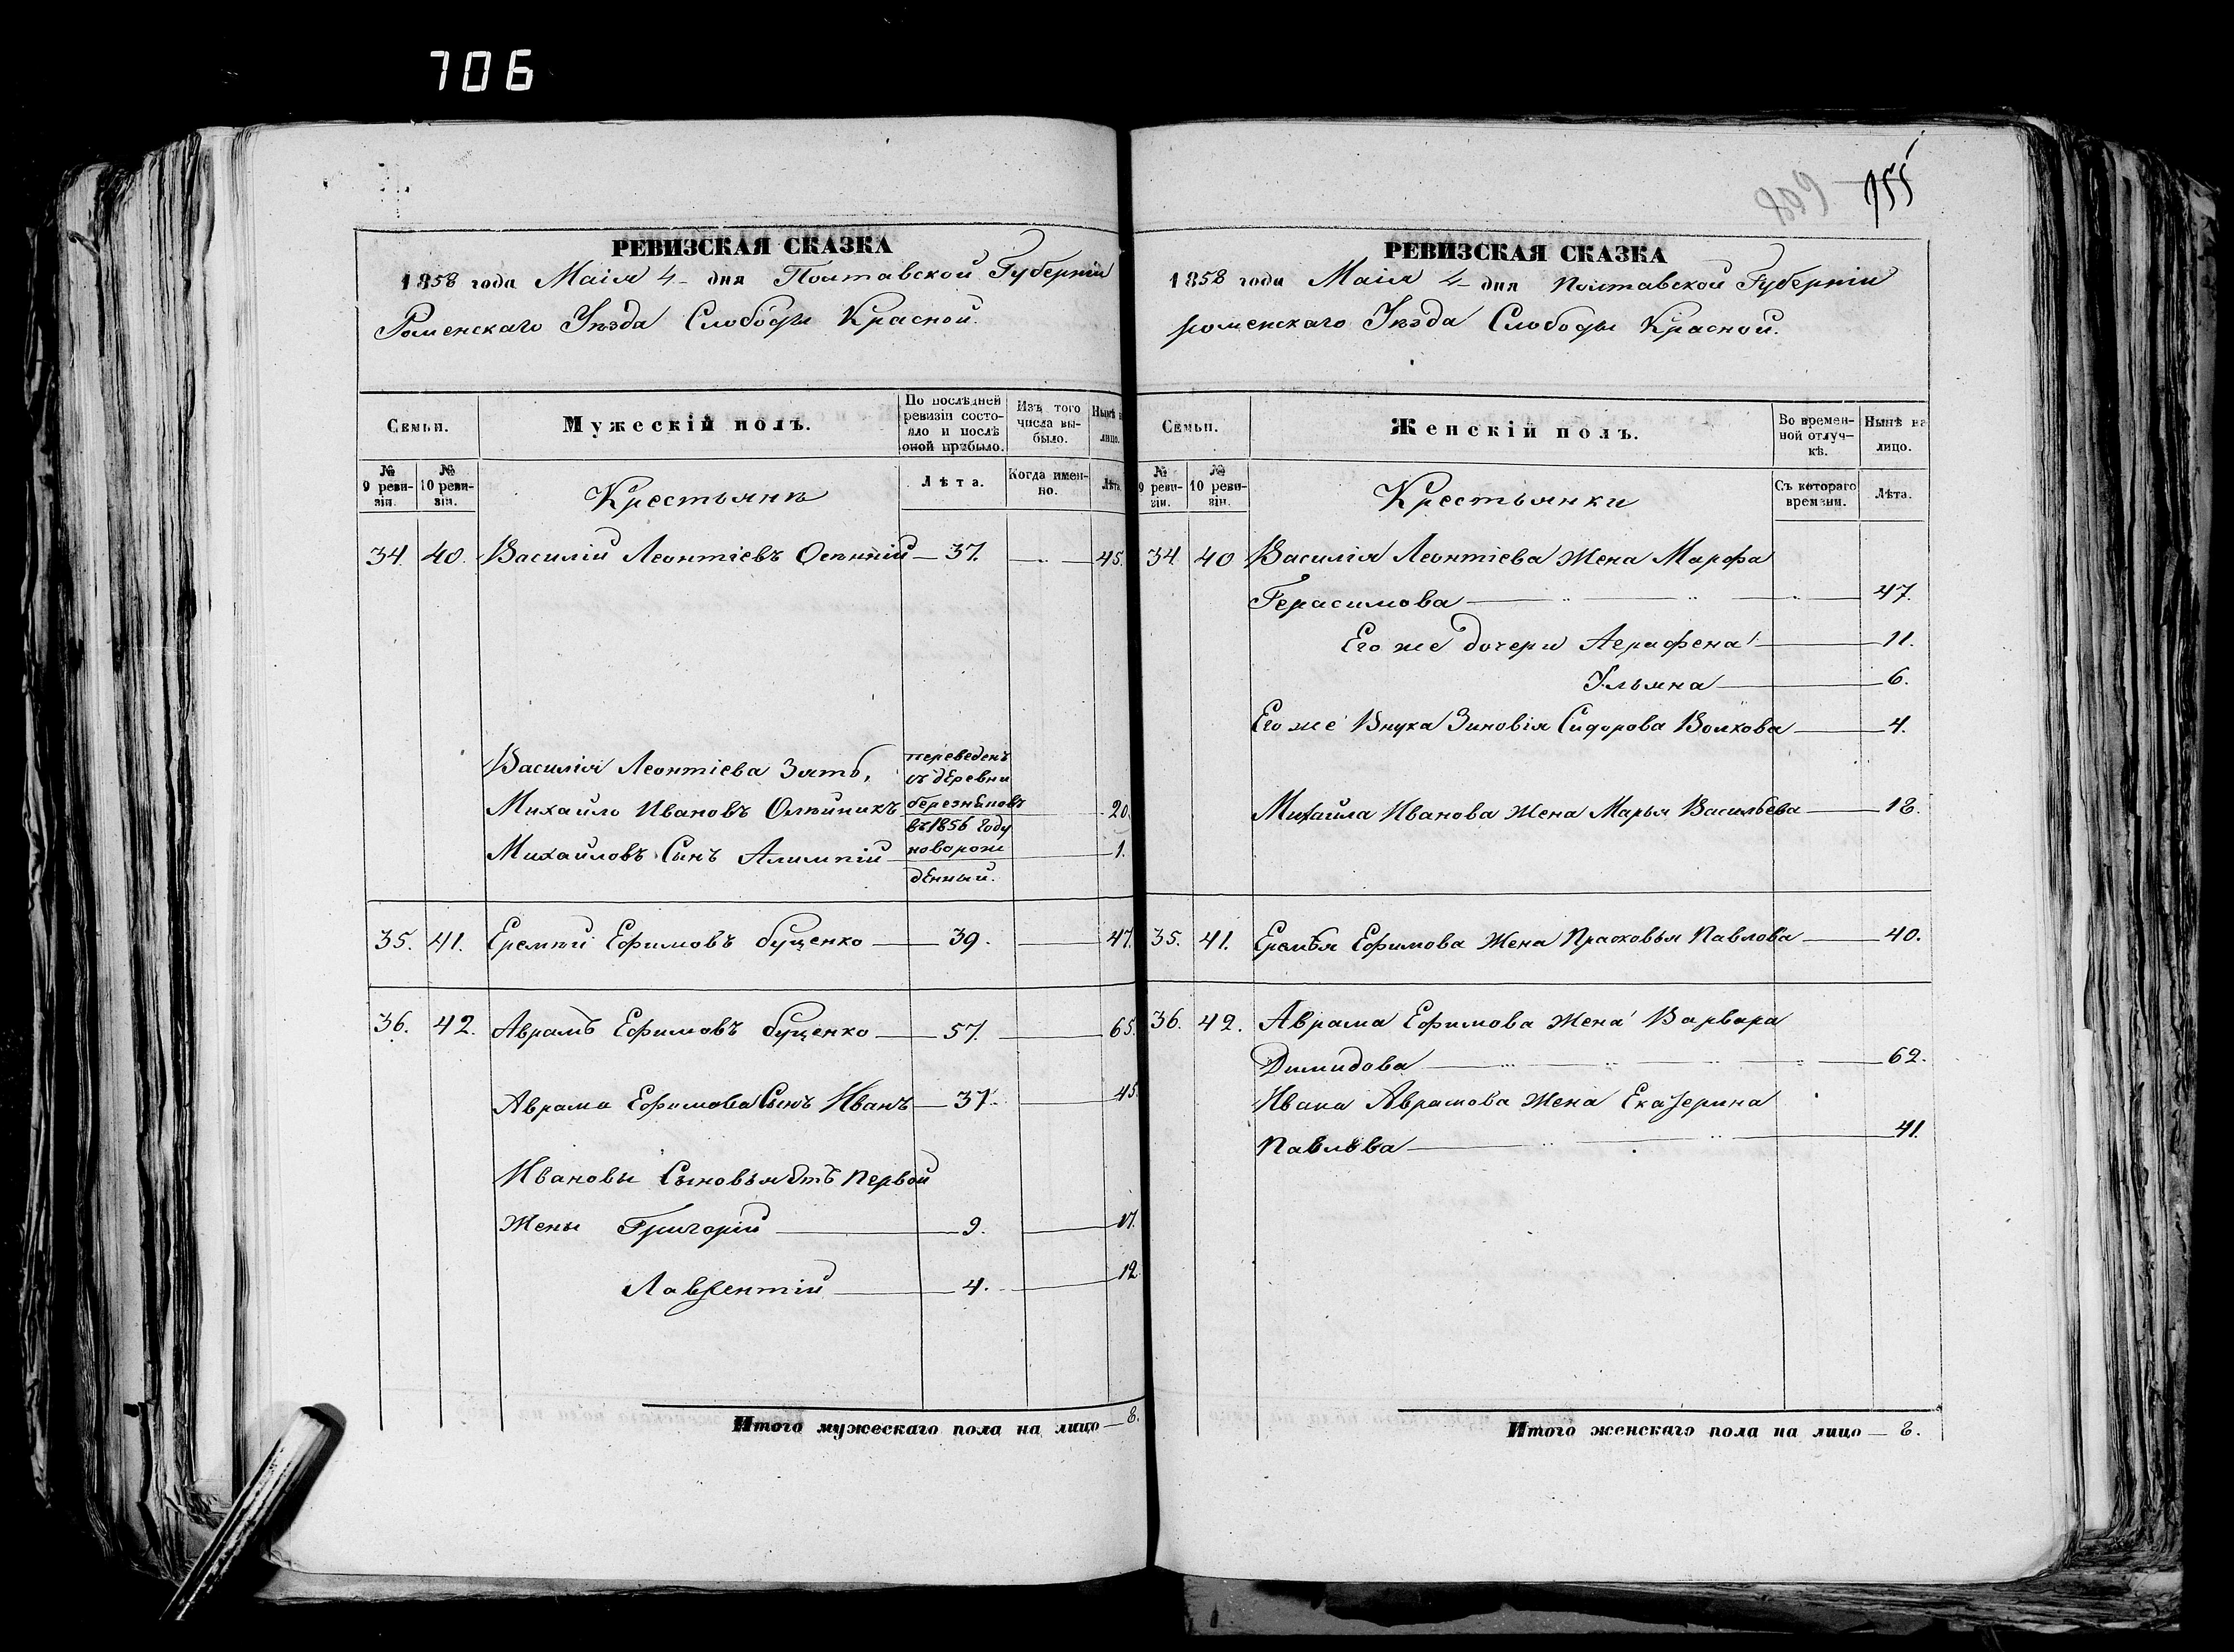 706
755
РЕВИЗСКАЯ СКАЗКА
1858 года Маія 4 дня Полтавской Губерніи
Роменскаго Уѣзда Слободы Красной.
Семьи.
Мужескій полъ.
По послѣдней ревизіи состояло и послѣ оной прибыло.
Изъ того числа выбыло.
Нынѣ
лицо.
№ 9 ревизіи.
№ 10 ревизіи.
Крестьяне
Лѣта.
Когда именно.
Лѣта
34. 40. Василій Леонтіевъ — 37. — 45.
Василія Леонтіева Зять,
переведенъ
съ деревни
Михайло Ивановъ Олѣйникъ
20.
въ 1856 году
Михайловъ Сынъ Алимпій
новорож
1.
денный.
35. 41. Еремѣй Ефимовъ Буценко — 39. — 47.
36. 42. Аврамъ Ефимовъ Буценко — 57. — 65.
Аврама Ефимова Сынъ Иванъ — 37. — 45.
Ивановы Сыновья отъ первой
Жены Григорій — 9. — 17.
Лаврентій — 4. — 12
Итого мужескаго пола на лицо — 8.
РЕВИЗСКАЯ СКАЗКА
1858 года Маія 4 дня Полтавской Губерніи
роменскаго Уѣзда Слободы Красной.
Семьи.
Женскій полъ.
Во временной отлучкѣ.
Нынѣ на лицо.
№ 9 ревизіи.
№ 10 ревизіи.
Крестьянки
Съ котораго времени.
Лѣта.
34. 40 Василія Леонтіева Жена Марфа
Герасимова — 47.
Его же дочери Аграфена — 11.
Ульяна — 6.
Его же Внука Зиновія Сидорова Волкова — 4.
Михайла Иванова Жена Марья Васильева — 18.
35. 41. Еремѣя Ефимова Жена Прасковья Павлова — 40.
36. 42. Аврама Ефимова Жена Варвара
Димидова — 62.
Ивана Аврамова Жена Екатерина
Павлова — 41.
Итого женскаго пола на лицо — 8.